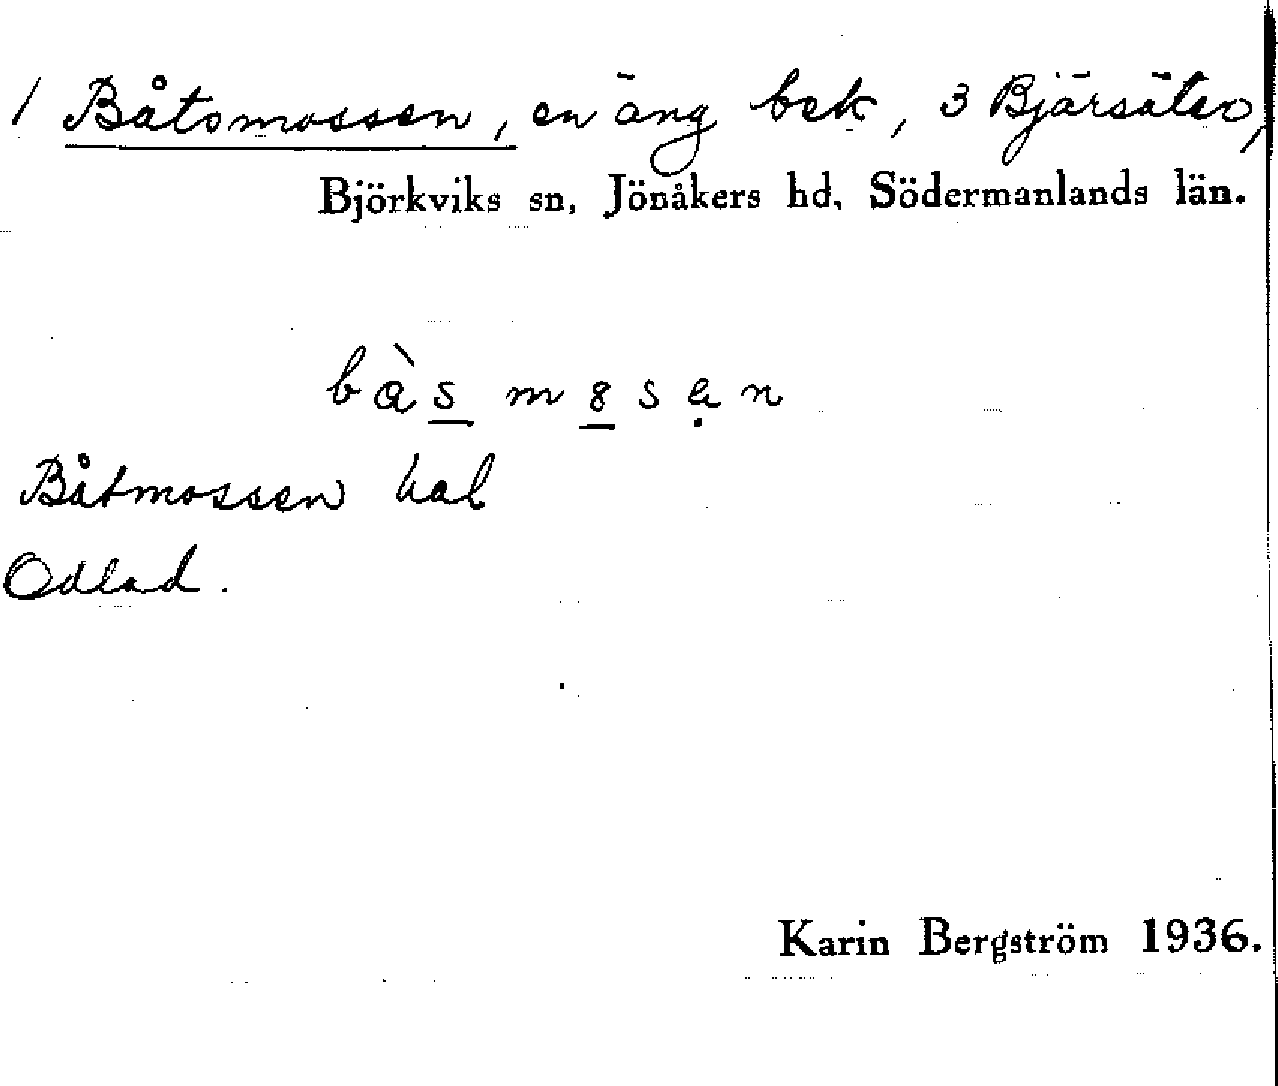 1 Båtsmossen, en äng bek, 3 Bjärsäter,
Björkviks sn, Jönåkers hd, Södermanlands län.
bɑ̀s m8sən
Båtmossen hal
Odlad.
Karin Bergström 1936.